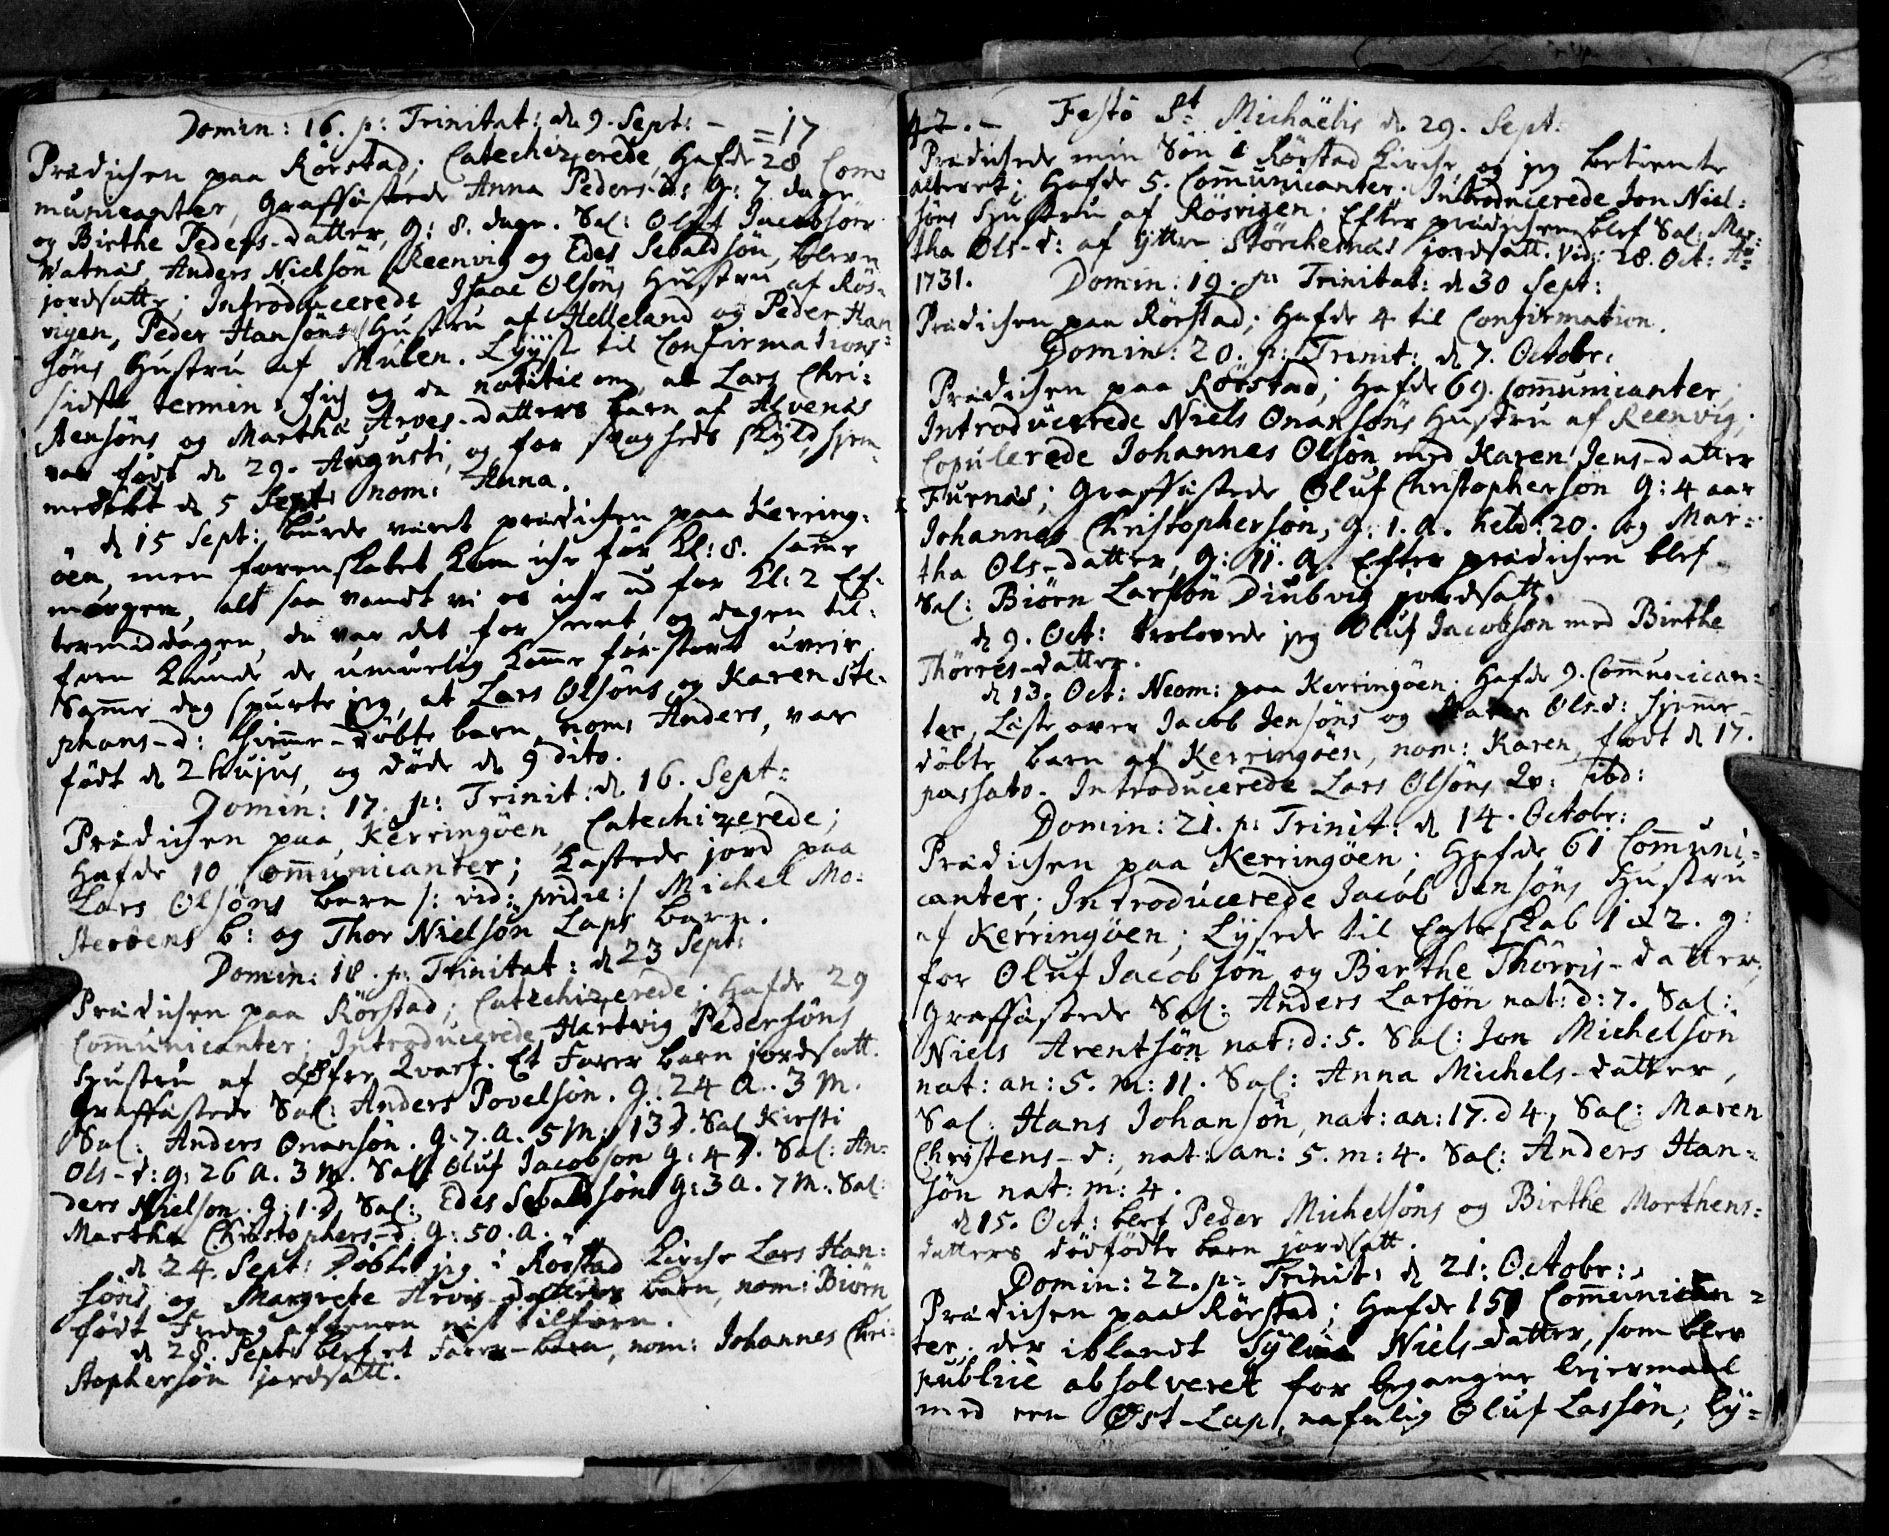 Domin: 16. p: Trinitat: d. 9. Sept: - = 17
Prædichen paa Rörstad; Catechizerede, Hafde 28 Com
municanter, Graffästede Anna Peders-d: g: 7 dage
og Birthe Peders-datter, g: 8. dage. Sal: Oluf Jacobsön
Watnäs, Anders Nielsön Reenvig og Edes Sebaldsön, bleve
jordsatte; Introducerede Isaac Olsöns Hustru af Rös-
vigen, Peder Hansöns Hustru af Helleland og Peder Han
söns Hustru af Mulen. Lyyste til Confirmations-
sidste termin, fich og da notitie om, at Lars Chri-
stensöns og Martha Arves-datters barn af Alvenäs
var födt d. 29. Augusti, og for svagheds skyld hjem-
medöbt d. 5 Sept: nom: Anna.
d. 15 Sept: burde været prædichen paa Kerring-
öen, men forenskabet kom iche för Kl: 8. samme
morgen, alt saa vandt vi os iche ud for Kl: 2 Ef-
termiddagen, da var det for seent, og dagen til-
forn kunde de umuelig komme for stort uveir.
Samme dag spurte jeg, at Lars Olsöns og Karen Ste-
phans-d: hjemme-döbte barn, nom: Anders, var
födt d. 2 hujus, og döde d. 9 dito.
Domin: 17. p: Trinit: d. 16. Sept:
Prædichen paa Kerringöen, Catechizerede;
Hafde 10 Communicanter; Kastede jord paa
Lars Olsöns barn /: vid: pridie :/ Michel Mo-
stersens b: og Thor Nielsön Laps barn.
Domin: 18. p: Trinitat: d. 23 Sept:
Prædichen paa Rörstad; Catechizerede; Hafde 29
Communicanter; Introducerede Hartvig Pedersöns
Hustru af Øfre Qvarf. Et Farer barn jordsatt.
Graffästede Sal: Anders Povelsön. g: 24 A. 3 M.
Sal: Anders Onansön. g. 7. A. 5 M: 13 D. Sal Kirsti
Ols-d: g: 26 A. 3 M. Sal: Oluf Jacobsön g: 4 D. Sal: An-
ders Nielsön. g: 1. D. Sal: Edes Sebaldsön g: 3 A. 7 M. Sal:
Martha Christophers-d. g: 50. A.
d. 24. Sept: Döbte jeg i Rörstad Kirche Lars Han-
söns og Margrete Arvis-datters barn, nom: Biörn
födt Fredag aftenen näst tilforn.
d. 28. Sept: blef et Farer-barn, nom: Johannes Chri-
stophersön jordsatt.
42. - Festo St Michaëlis d. 29. Sept:
Prædichede min Sön i Rörstad Kirche, og jeg betiente
alteret; Hafde 5. Communicanter; Introducerede Jon Niel-
söns Hustru af Rösvigen; Efter prædichen blef Sal: Mar-
tha Ols-d: af yttre Störchenäs jordsatt. vid: 28. Oct: Ao
1731. Domin: 19. p: Trinitat: d. 30 Sept:
Prædichen paa Rörstad; Hafde 4 til Confirmation.
Domin: 20. p: Trinit: d. 7. Octobr:
Prædichen paa Rörstad; Hafde 69. Communicanter,
Introducerede Niels Onansöns Hustru af Reenvig;
Copulerede Johannes Olsön med Karen Jens-datter
Furnäs; Graffästede Oluf Christophersön g: 4 aar
Johannes Christophersön, g: 1. A. hebd: 20. og Mar-
tha Ols-datter, g: 11. A. Efter prædichen blef
Sal: Biörn Larsön Diubvig jordsatt.
d. 9. Oct: trolovede jeg Oluf Jacobsön med Birthe
Thörres-datter.
d. 13. Oct: Neom: paa Kerringöen. Hafde 9. Communican-
ter, Läste over Jacob Jensöns og Maren Ols-d: hjemme-
döbte barn af Kerringöen, nom: Karen, födt d. 17.
passato. Introducerede Lars Olsöns Qv: ibd:
Domin: 21. p: Trinit: d. 14. Octobr:
Prædichen paa Kerringöen; Hafde 61 Communi-
canter; Introducerede Jacob Jensöns Hustru
af Kerringöen; Lysede til Egteskab 1 & 2. g:
for Oluf Jacobsön og Birthe Thörris-datter;
Graffästede Sal: Anders Larsön nat: d: 7. Sal:
Niels Arentsön nat: d: 5. Sal: Jon Michelsön
nat: an: 5. m: 11. Sal: Anna Michels-datter,
Sal: Hans Johansön, nat: an: 17. d 4, Sal: Maren
Christens-d:, nat: an: 5. m: 4. Sal: Anders Han-
sön nat: m: 4.
d. 15. Oct: blef Peder Michelsöns og Birthe Morthens-
datters dödfödte barn jordsatt.
Domin: 22. p: Trinit: d. 21: Octobr:
Prædichen paa Rörstad; Hafde 151 Communican-
ter, der iblandt Sylvia Niels-datter, som blev
publice absolveret for begangne leiermaal
med een Øst-Lap, nafnlig Oluf Lassön; Ly-